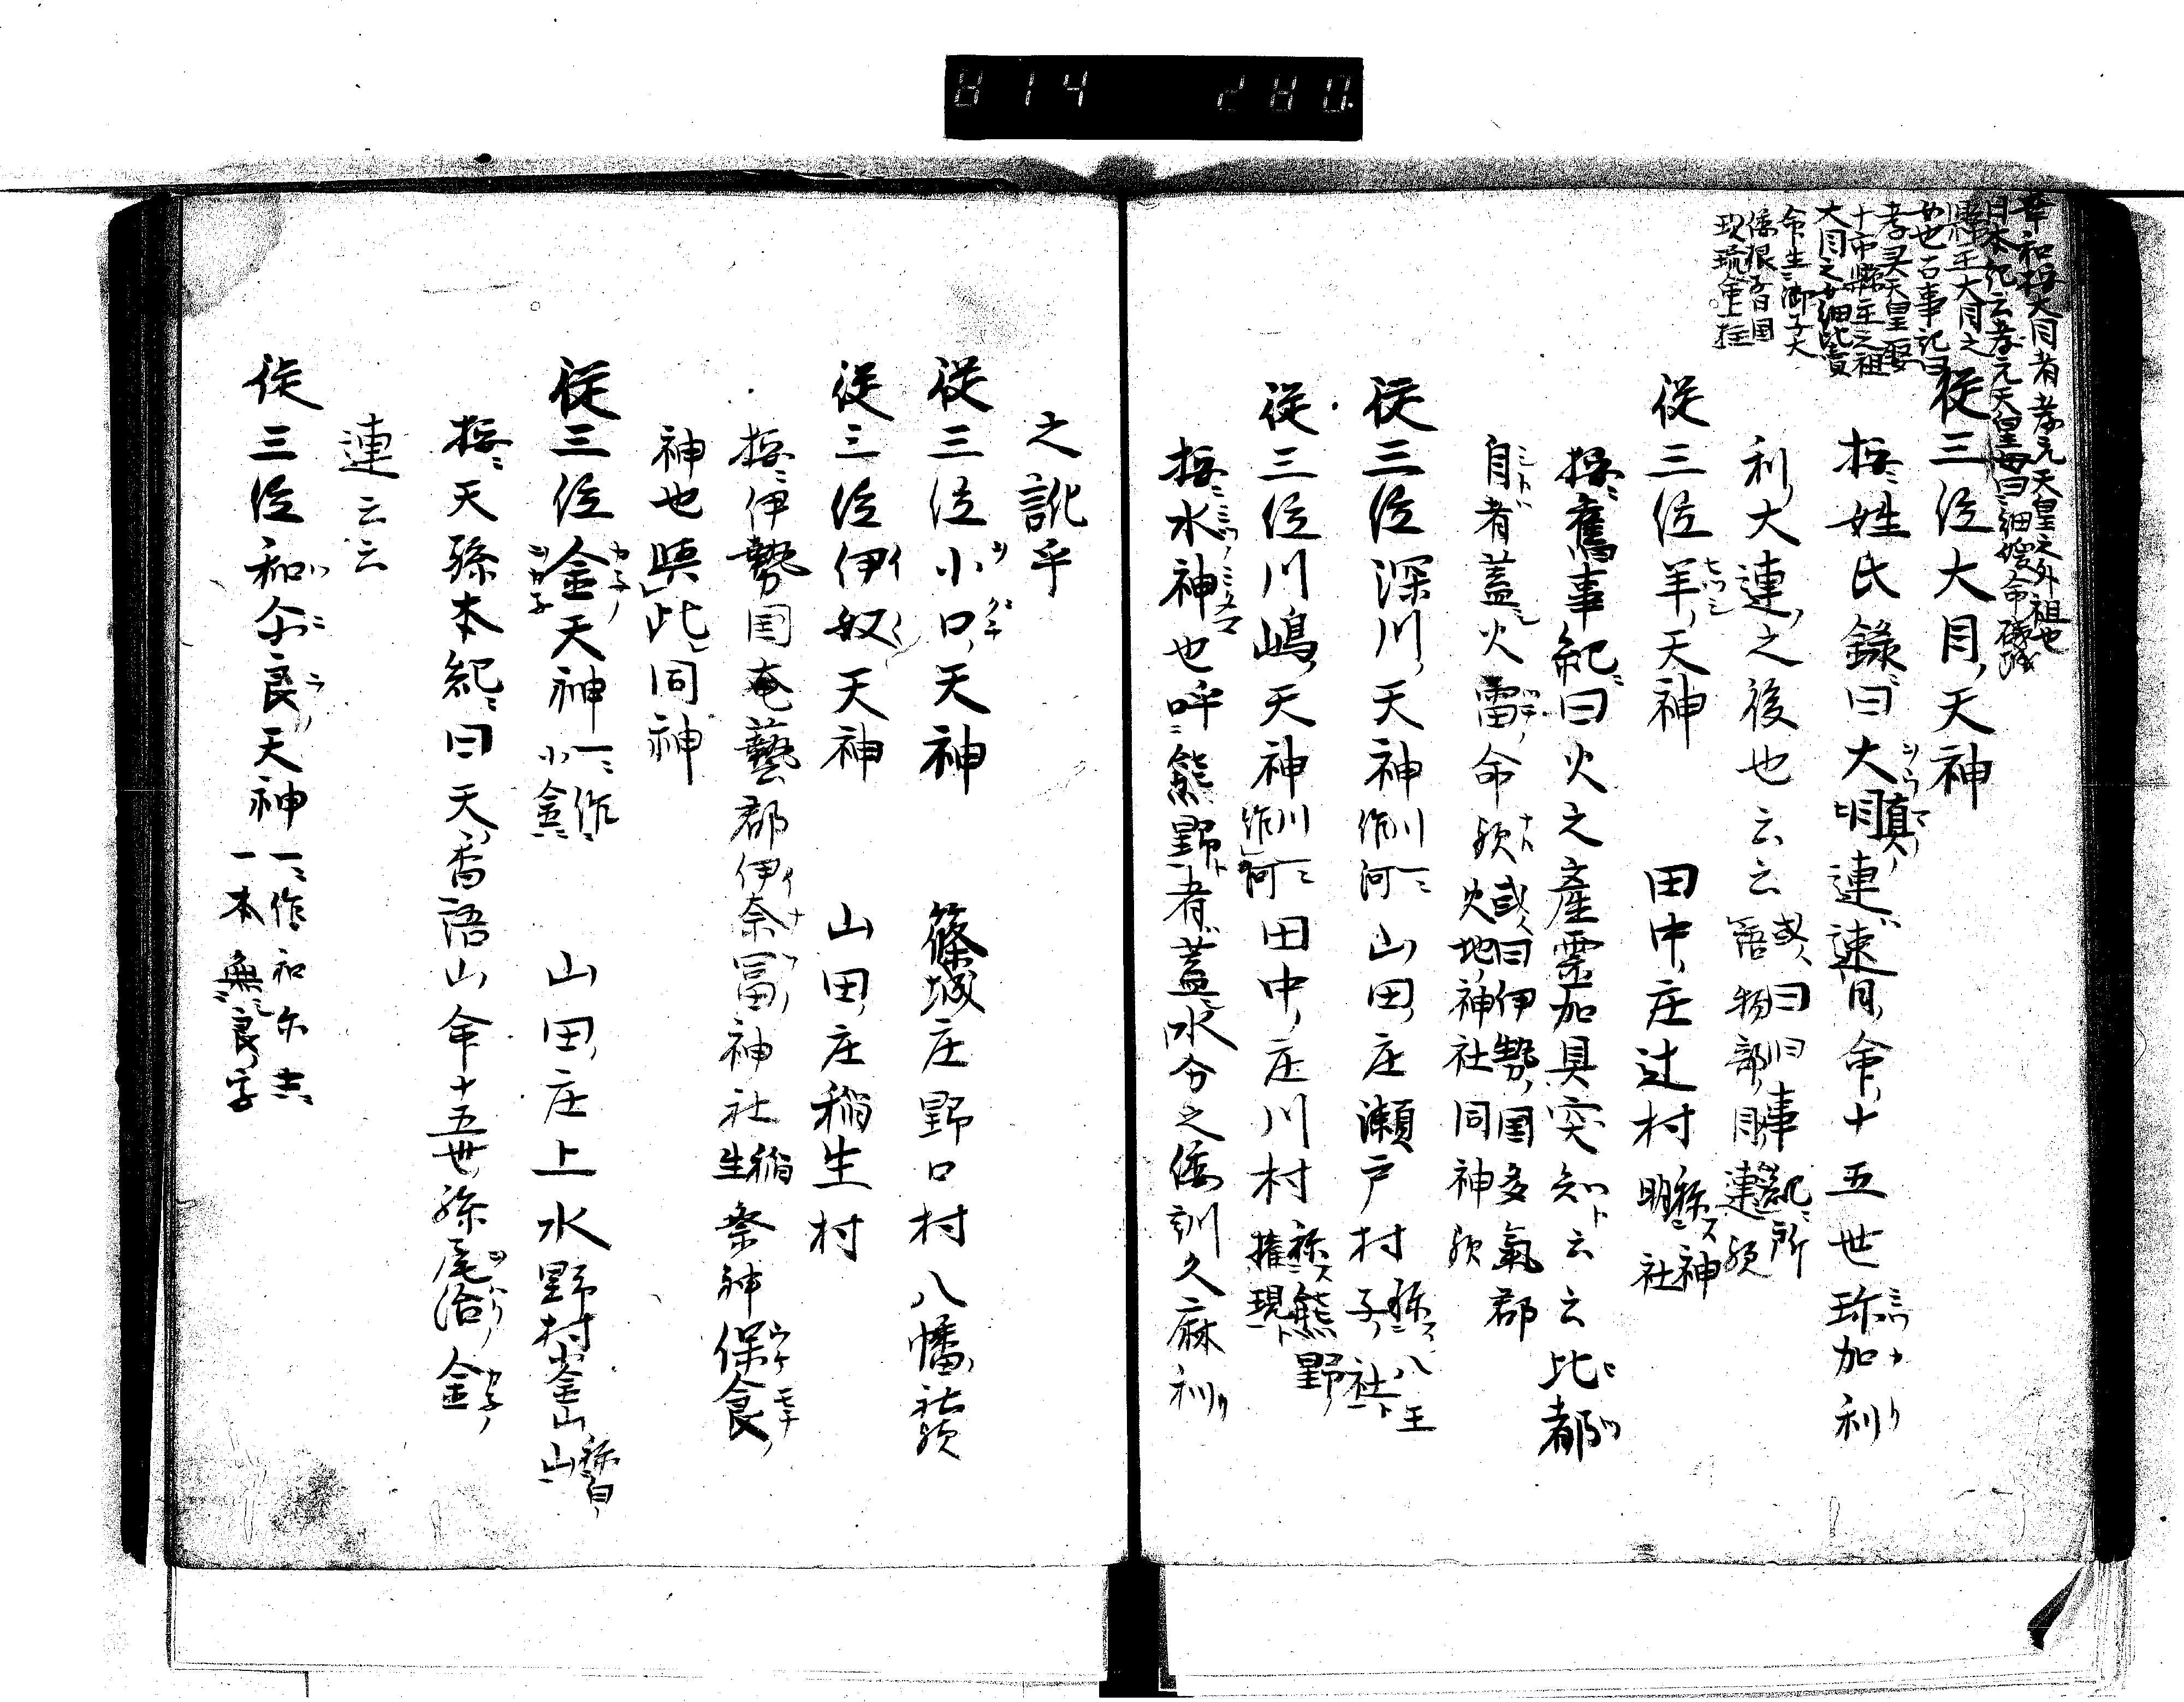 814 280.
幸和按大目者孝元天皇之外祖也
日本紀云孝元天皇母曰細媛命磯城
縣主大目之
女也古事記曰
孝灵天皇娶
十市縣主之祖
大目之女細比賣
命生御子大
倭根子日国
玖琉命上拄
従三位大目天神
按姓氏錄曰大明連速日命十五世珎加利
真
利大連之後也云云 或曰旧事紀所
謂物部目連歟
従三位羊天神 田中庄辻村 称神
明社
按舊事紀曰火之產霊加具突知云云比都
自者蓋火雷命歟 或曰伊勢国多氣郡
火地神社同神歟
従三位深川天神 川一
作河 山田庄瀬戸村 称八王
子社
従三位川嶋天神 川一
作河 田中庄川村 称熊野
権現
按水神也呼熊野者蓋水分之倭訓久麻利
之訛乎
従三位小口天神 篠城庄野口村八幡社歟
従三位伊奴天神 山田庄稲生村
按伊勢国奄藝郡伊奈冨神社 稲
生 祭神保食
神也與此同神
従三位金天神 一作
小金 山田庄上水野村釜山 称白
山
按天孫本紀曰天香語山命十五世孫尾治金
連云云
従三位和尒良天神 一作和尒吉
一本無良字